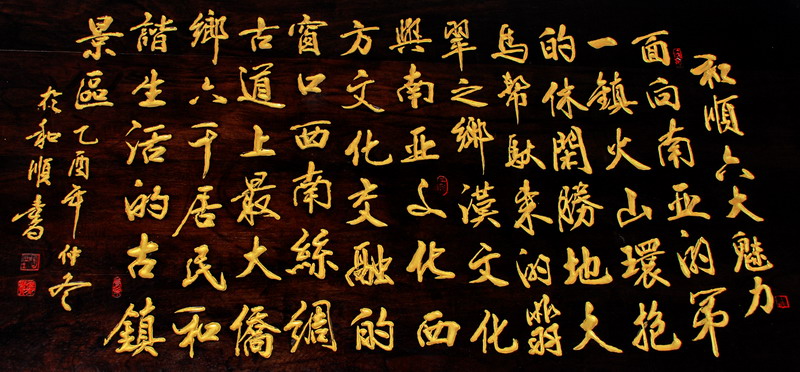 和順六大魅力
面向南亚的第
一鎮火山環抱
的休閑勝地大
馬幫馱来的翡
翠之鄉漢文化
與南亚文化西
方文化交融的
窗口西南絲綢
古道上最大僑
鄉六千居民和
諧生活的古鎮
景區
乙酉年仲冬
於和順書